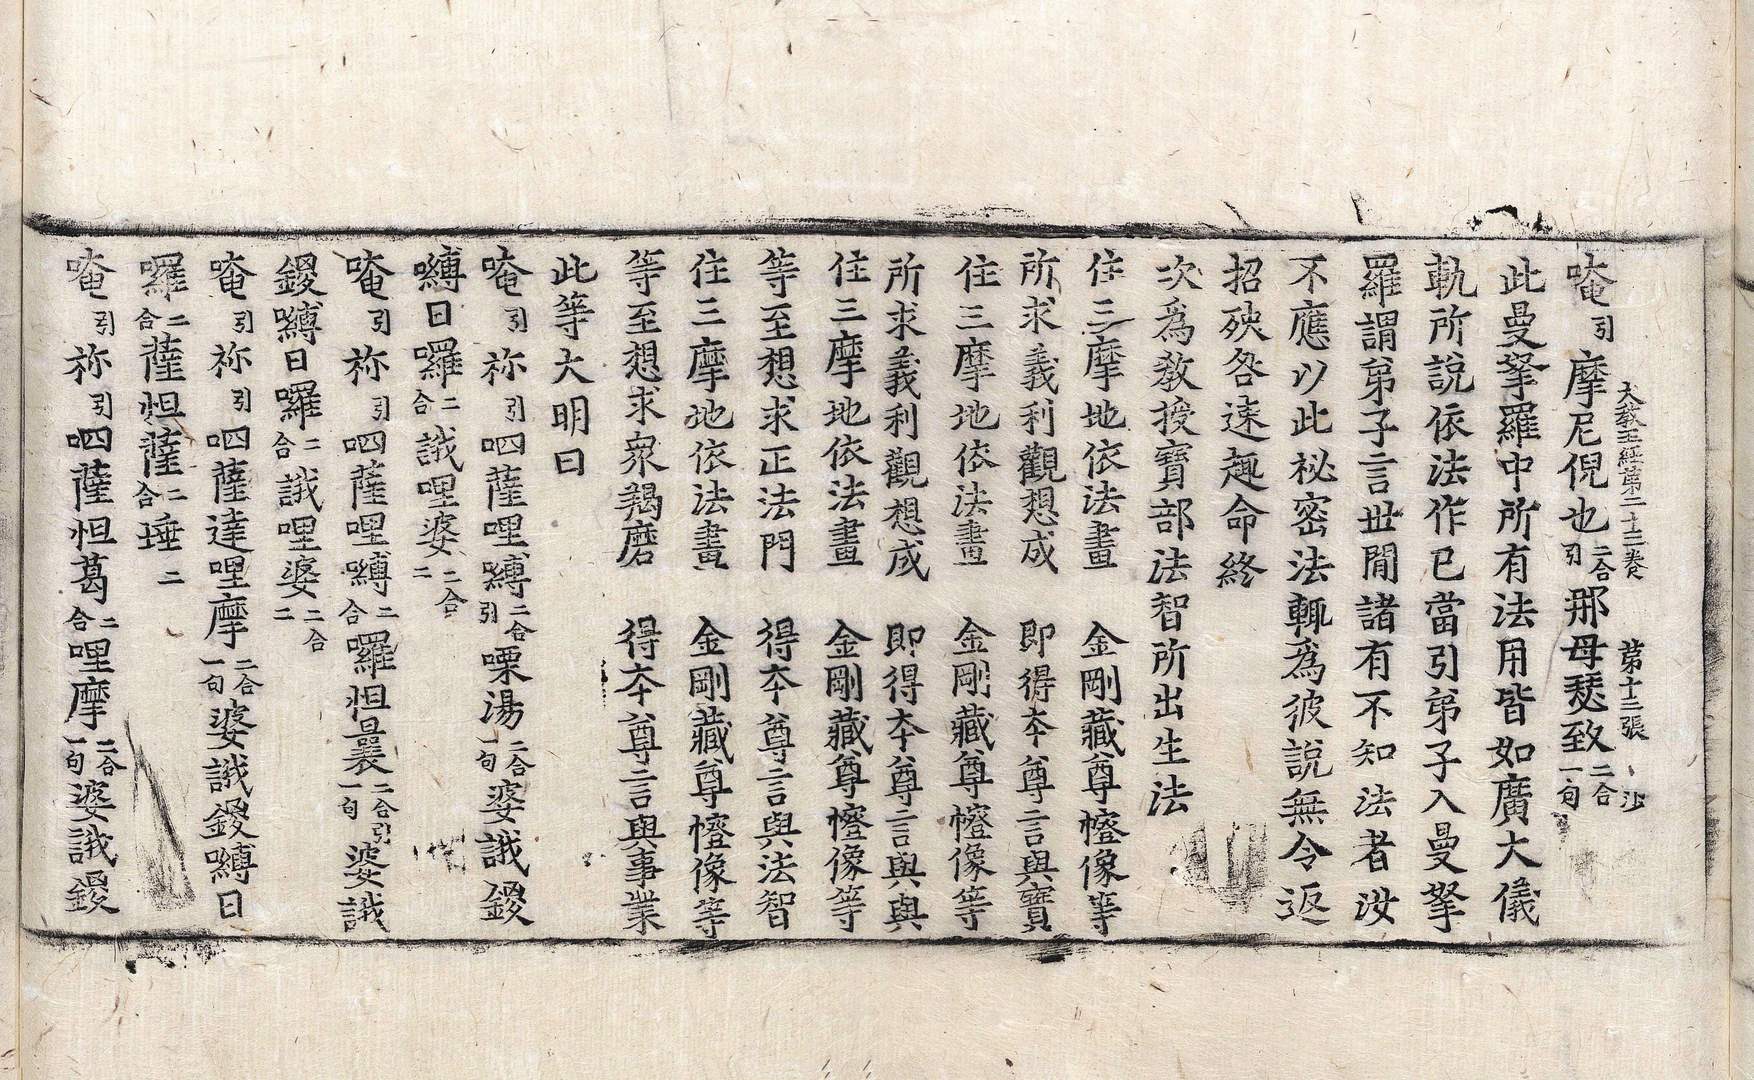 大教王經第二十三卷　第十二張　沙
唵引摩尼倪也二合引那母瑟致二合一句
此曼拏羅中所有法用皆如廣大儀
軌所說依法作已當引弟子入曼拏
羅謂弟子言世間諸有不知法者汝
不應以此祕密法輒為彼說無令返
招殃咎速趣命終
次為教授寶部法智所出生法
住三摩地依法畫　金剛藏尊㡧像等
所求義利觀想成　即得本尊言與寶
住三摩地依法畫　金剛藏尊㡧像等
所求義利觀想成　即得本尊言與與
住三摩地依法畫　金剛藏尊㡧像等
等至想求正法門　得本尊言與法智
住三摩地依法畫　金剛藏尊㡧像等
等至想求衆羯磨　得本尊言與事業
此等大明曰
唵引祢引呬薩哩嚩二合引㗚湯二合一句婆誐鍐
嚩日囉二合誐哩婆二合二
唵引祢引呬薩哩嚩二合囉怛曩二合引一句婆誐
鍐嚩日囉二合誐哩婆二合二
唵引祢引呬薩達哩摩二合一句婆誐鍐嚩日
囉二合薩怛薩二合埵二
唵引祢引呬薩怛葛二合哩摩二合一句婆誐鍐